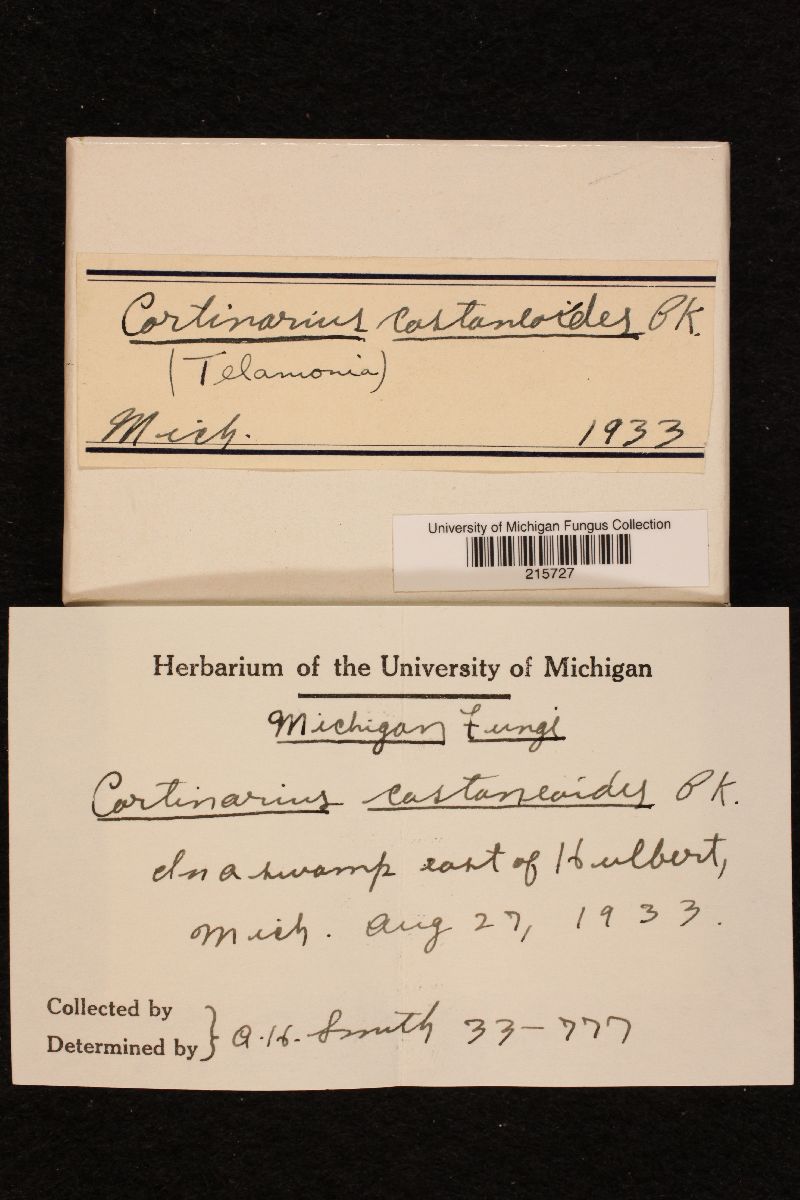 Cortinarius castaneoides Pk.
(Telamonia)
Mich. 1933
University of Michigan Fungus Collection
215727
Herbarium of the University of Michigan
Michigan Fungi
Cortinarius castaneoides Pk.
In a swamp east of Hulbert,
Mich. Aug 27, 1933.
Collected by
Determined by } A.H. Smith 33-777